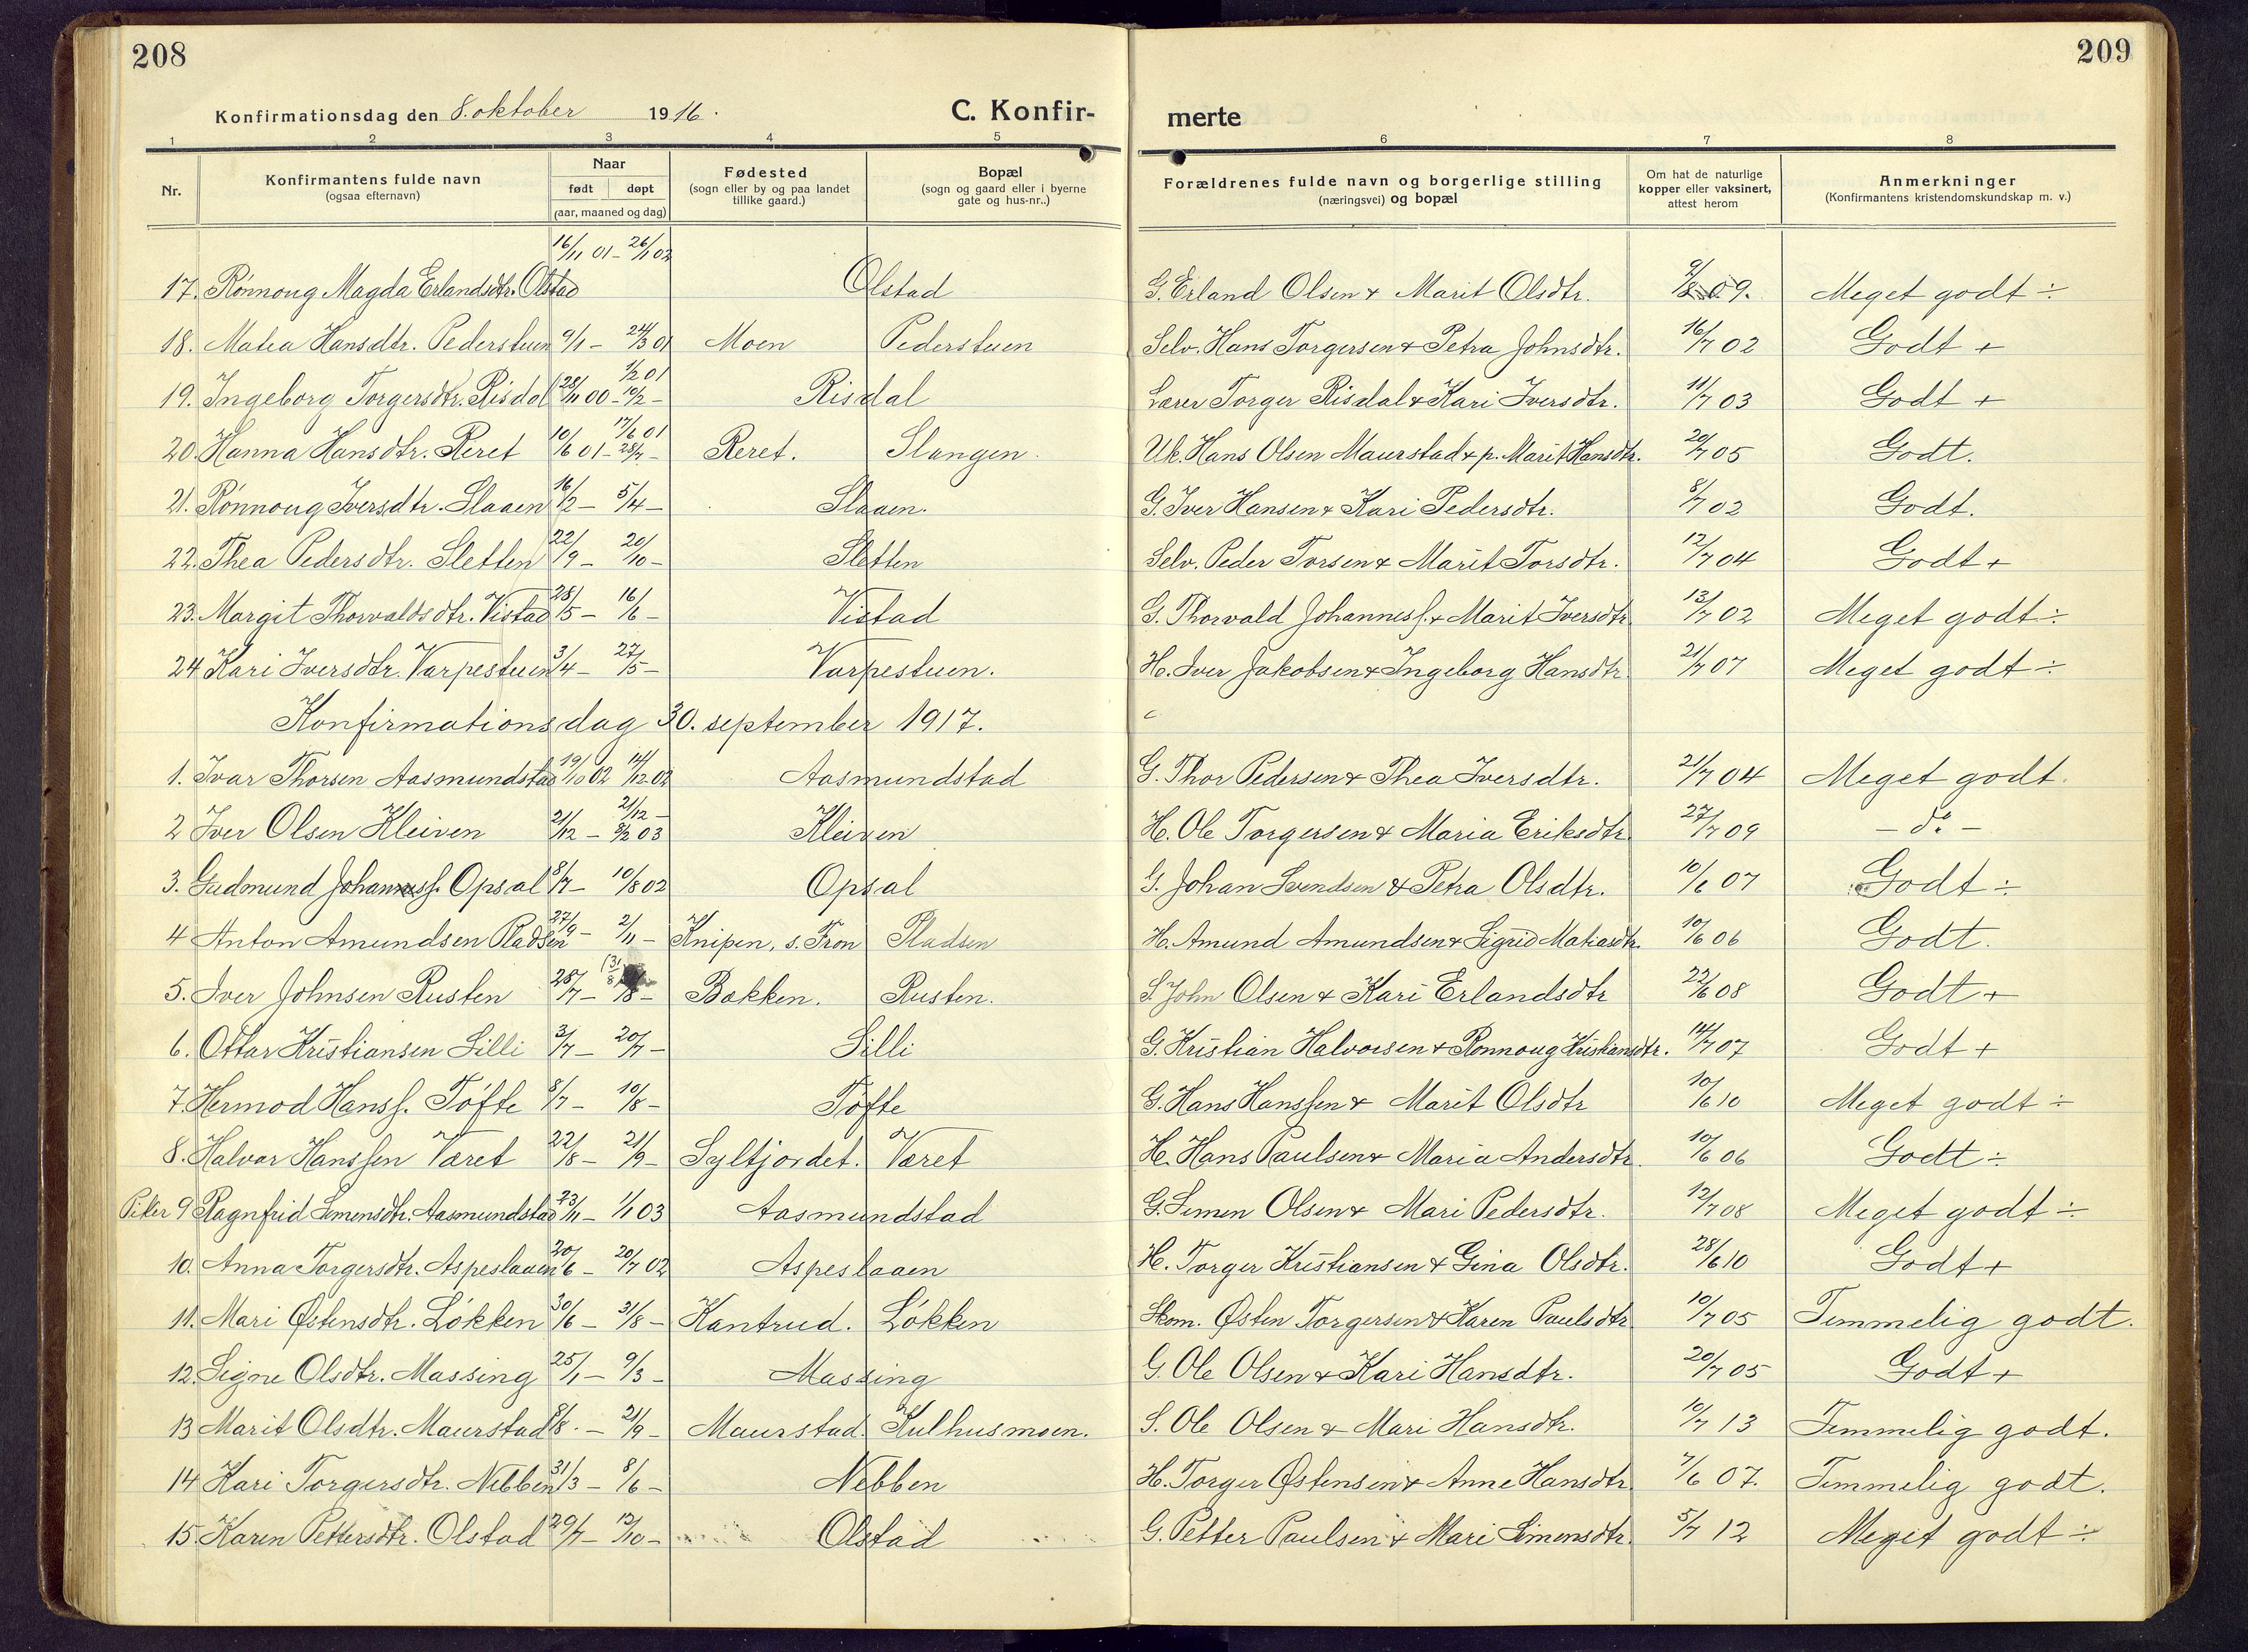 208
209
Konfirmationsdag den 8. oktober 1916.
C. Konfir-
merte
1 2 3 4 5 6 7 8
Nr.
Konfirmantens fulde navn
(ogsaa efternavn)
Naar
født døpt
(aar, maaned og dag)
Fødested
(sogn eller by og paa landet
tillike gaard.)
Bopæl
(sogn og gaard eller i byerne
gate og hus-nr..)
Forældrenes fulde navn og borgerlige stilling
(næringsvei) og bopæl
Om hat de naturlige
kopper eller vaksinert,
attest herom
Anmerkninger
(Konfirmantens kristendomskundskap m. v.)
17. Rønnoug Magda Erlandsdtr. Olstad 16/11 01 - 26/1 02 Olstad G. Erland Olsen & Marit Olsdtr. 09. Meget godt ÷
18. Matea Hansdtr. Pederstuen 9/1 - 24/3 01 Moen Pederstuen Selv. Hans Torgersen & Petra Johnsdtr. 16/7 02 Godt +
19. Ingeborg Torgersdtr. Risdal 28/11 00 - 1/2 01 10/2 - Risdal Lærer Torger Risdal & Kari Iversdtr. 11/7 03 Godt +
20. Hanna Hansdtr. Reret 10/6 01 - 17/6 01 28/7 - Reret. Slangen. Uk. Hans Olsen Maurstad & p. Marit Hansdtr. 20/7 05 Godt.
21. Rønnoug Iversdtr. Slaaen 16/2 - 5/4 - Slaaen. G. Iver Hansen & Kari Pedersdtr. 8/7 02 Godt.
22. Thea Pedersdtr. Sletten 22/9 - 20/10 - Sletten Selv. Peder Torsen & Marit Torsdtr. 12/7 04 Godt +
23. Margit Thorvaldsdtr. Vistad 28/5 - 16/6 - Vistad G. Thorvald Johanness. & Marit Iversdtr 13/7 02 Meget godt ÷
24 Kari Iversdtr. Varpestuen 3/4 - 27/5 - Varpestuen. H. Iver Jakobsen & Ingeborg Hansdtr 21/7 07 Meget godt ÷
Konfirmationsdag 30. september 1917.
1. Ivar Thorsen Aasmundstad 19/10 02 14/12 02 Aasmundstad G. Thor Pedersen & Thea Iversdtr. 21/7 04 Meget godt.
2 Iver Olsen Kleiven 21/12 - 21/12 - 8/2 03 Kleiven H. Ole Torgersen & Maria Eriksdtr 27/7 09 - do -
3. Gudmund Johanness. Opsal 8/7 - 10/8 02 Opsal G. Johan Svendsen & Petra Olsdtr. 10/6 07 Godt ÷
4 Anton Amundsen Pladsen 27/9 - 2/11 - Knipen, s. Fron Pladsen H. Amund Amundsen & Sigrid Matiasdtr. 10/6 06 Godt.
5. Iver Johnsen Rusten 28/7 - Bakken. Rusten. S. John Olsen & Kari Erlandsdtr 22/6 08 Godt +
6. Ottar Kristiansen Silli 3/7 - 20/7 - Silli G. Kristian Halvorsen & Rønnoug Kristiansdtr. 14/7 07 Godt +
7. Hermod Hanss. Tofte 8/7 - 10/8 - Tofte G. Hans Hanssen & Marit Olsdtr 10/6 10 Meget godt ÷
8. Halvor Hanssen Været 22/8 - 21/9 - Syltjordet. Været H. Hans Paulsen & Maria Andersdtr. 10/6 06 Godt ÷
Piker 9 Ragnfrid Simensdtr. Aasmundstad 23/11 - 1/1 03 Aasmundstad G. Simen Olsen & Mari Pedersdtr. 12/7 08 Meget godt ÷
10. Anna Torgersdtr. Aspeslaaen 20/6 - 20/7 02 Aspeslaaen H. Torger Kristiansen & Gina Olsdtr. 28/6 10 Godt +
11. Mari Østensdtr. Løkken 30/6 - 31/8 - Kantrud. Løkken Skom. Østen Torgersen & Karen Paulsdtr 10/7 05 Temmelig godt.
12. Signe Olsdtr. Massing 25/1 - 9/3 - Massing G. Ole Olsen & Kari Hansdtr. 20/7 05 Godt +
13 Marit Olsdtr. Maurstad 8/8 - 21/9 - Maurstad. Kulhusmoen. S. Ole Olsen & Mari Hansdtr. 10/7 13 Temmelig godt.
14 Kari Torgersdtr. Nebben 31/3 - 8/6 - Nebben H. Torger Østensen & Anne Hansdtr. 7/6 07. Temmelig godt.
15. Karen Pettersdtr. Olstad 29/7 - 12/10 - Olstad G. Petter Paulsen & Mari Simensdtr. 5/7 12 Meget godt ÷